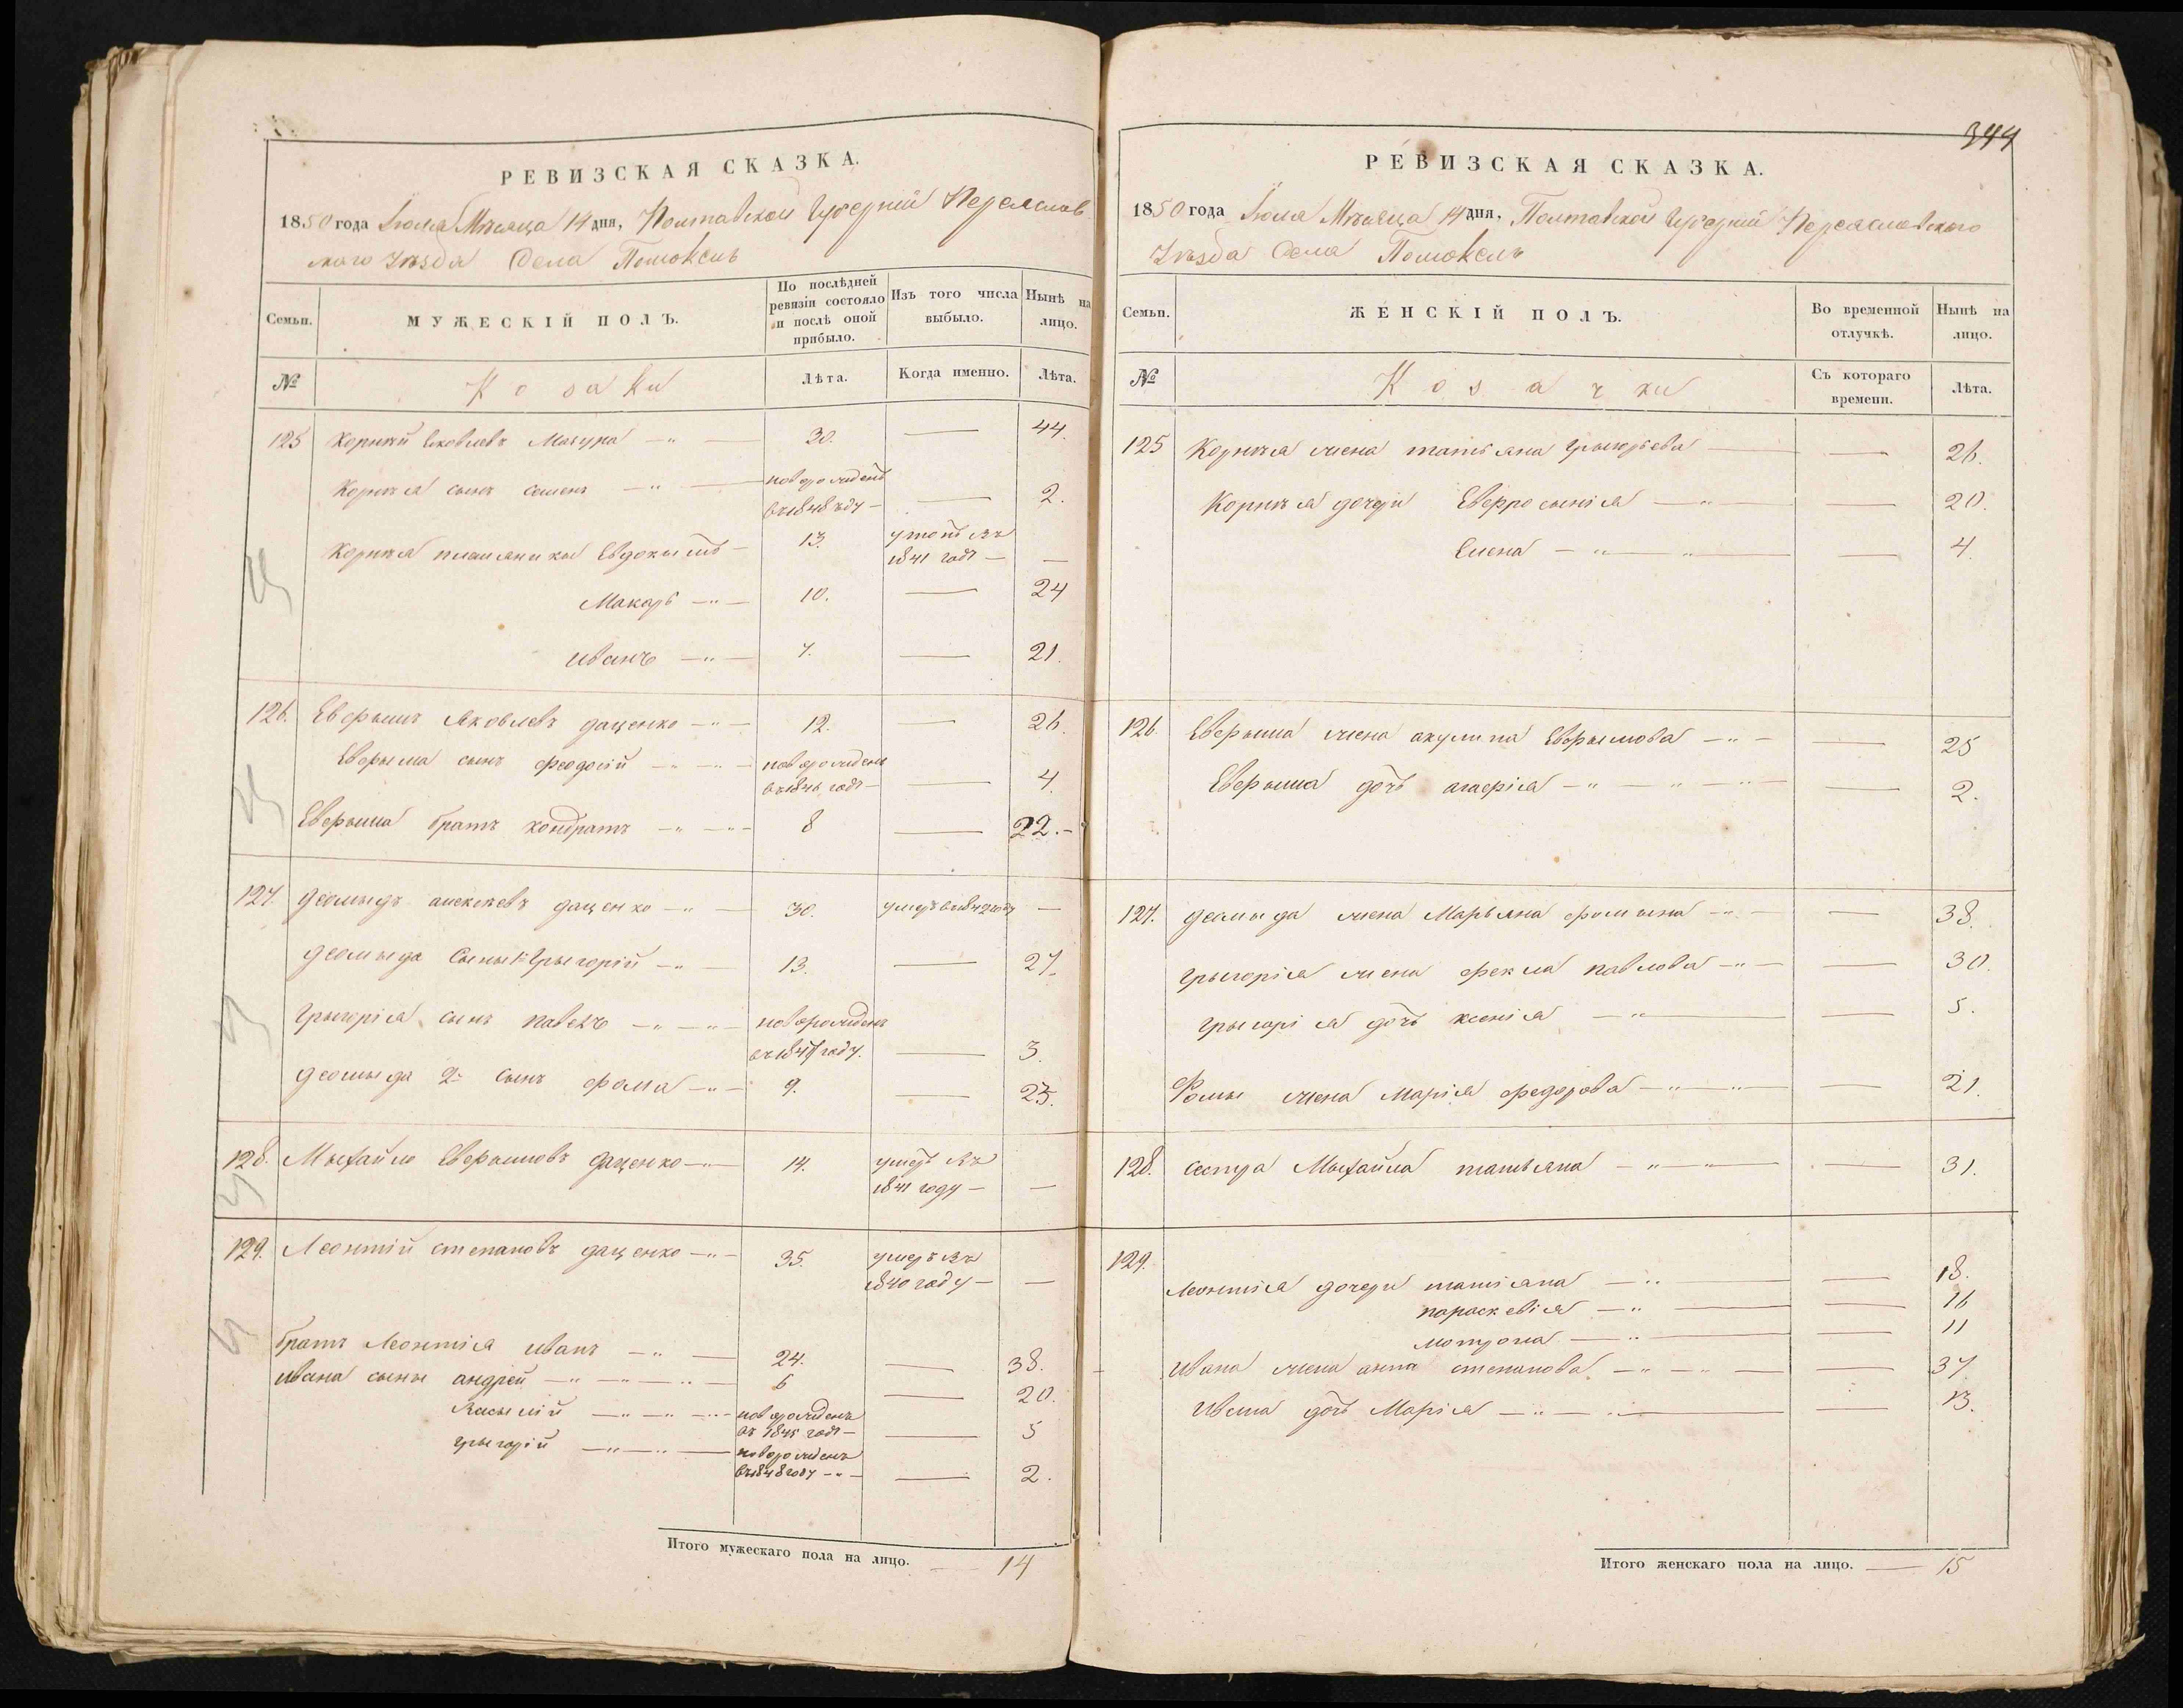 РЕВИЗСКАЯ СКАЗКА.
1850 года Июля Мѣсяца 14 дня, Полтавской Губерніи Переяслов
скаго Уѣзда Села Помоклъ
Семьи.
МУЖЕСКІЙ ПОЛЪ.
По послѣдней ревизіи состояло и послѣ оной прибыло.
Изъ того числа выбыло.
Нынѣ на лицо.
№
Козаки
Лѣта.
Когда именно.
Лѣта.
125 Корнѣй Яковлевъ Мазура 30. — 44.
Корнѣя сынъ Семенъ новорожденъ — 2.
въ 1848 году
Корнѣя племяники Евдокимъ 13. въ —
1841 годѣ
Макаръ 10. — 24
Иванъ 7. — 21.
126. Евфимъ Яковлевъ даценко 12. — 26.
Евфима сынъ феодосій новорожденъ — 4.
въ 1846 годѣ
Евфима братъ кондратъ 8 — 22.
127. Деомидъ алексѣевъ даценко 30. умеръ въ 1842 году —
Деомида Сыны 1й Грыгорій 13. — 27.
Грыгорія сынъ павелъ новорожденъ
въ 1847 году. — 3.
Деомида 2й сынъ фома 9. — 23.
128. Михайло Евфимовъ даценко 14. умеръ въ
1841 году — —
129. Леонтій степановъ даценко 35. умеръ въ
1840 году — —
братъ Леонтія иванъ 24. — 38.
ивана сыны андрей 6 — 20.
Василій новорожденъ
въ 1845 годѣ — 5
Грыгорій новорожденъ
въ 1848 году — 2.
Итого мужескаго пола на лицо. — 14
344
РЕВИЗСКАЯ СКАЗКА.
1850 года Июля Мѣсяца 14 дня, Полтавской Губерніи Переясловского
Уѣзда Села Помоклъ
Семьи.
ЖЕНСКІЙ ПОЛЪ.
Во временной отлучкѣ.
Нынѣ на лицо.
№
Козачки
Съ котораго времени.
Лѣта.
125 Корнѣя жена татьяна Грыгорьева — 26.
Корнѣя дочери Евфросынія — 20.
Елена — 4.
126. Евфима жена акулина Евфимова — 25
Евфима дочь — 2.
127. Деомида жена Марьяна фомина — 38.
Грыгорія жена фекла павлова — 30.
Грыгорія дочь ксенія — 5.
Фомы жена Марія федорова — 21.
128. сестра Михайла татьяна — 31.
129.
Леонтія дочери татіана — 18.
параскевія — 16
мотрона — 11
Ивана жена анна степанова — 37
Ивана дочь Марія — 13.
Итого женскаго пола на лицо. — 15